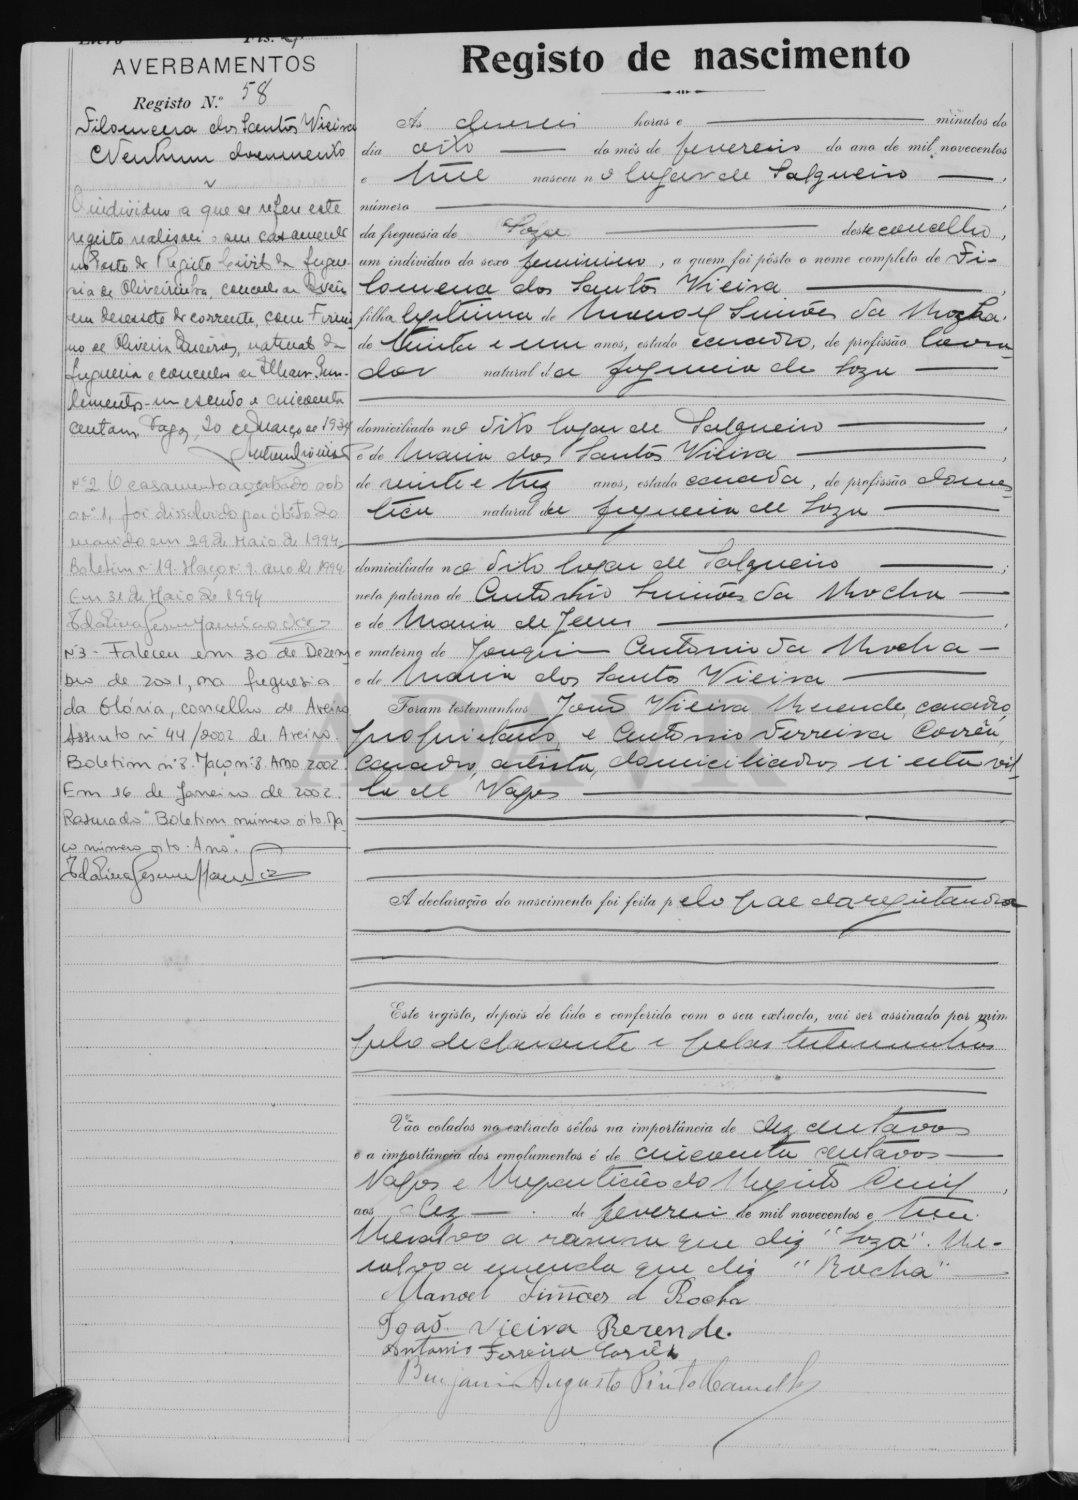 Livro Fls.
AVERBAMENTOS
Registo N.º 58
Filomena dos Santos Vieira
Nenhum documento
O individuo a que se refere este
registo realisou o seu casamento
no Posto do Registo Civil da fregue-
sia de Oliveirinha, concelho de Aveiro
em desessete do corrente, com Firmi-
no de Oliveira Queiroz, natural da
freguesia e concelho de Ilhavo. Emo-
lumentos - um escudo e cincoenta
centavos. Vagos, 20 de Março de 1934
Nº 2 O casamento averbado sob
o nº 1, foi dissolvido por óbito do
marido em 29 de Maio de 1994
Boletim nº 19. Maço nº 9. ano de 1994
Em 31 de Maio de 1994
Nº 3 - Faleceu em 30 de Dezem-
bro de 2001, na freguesia
da Glória, concelho de Aveiro
Assento nº 44/2002 de Aveiro.
Boletim nº 8. Maço nº 8. Ano 2002.
Em 16 de Janeiro de 2002.
Rasurado "Boletim número oito. Ma-
ço número oito. Ano".
Registo de nascimento
Ás horas e minutos do
dia oito do mês de fevereiro do ano de mil novecentos
e treze nasceu no lugar de Salgueiro ,
número ,
da freguesia de Soza deste concelho,
um individuo do sexo feminino, a quem foi pôsto o nome completo de Fi-
lomena dos Santos Vieira ,
filha legitima de Manoel Simões da Rocha,
de trinta e um anos, estado casado, de profissão lavra-
dor natural da freguesia de Soza
domiciliado no dito lugar de Salgueiro ,
e de Maria dos Santos Vieira ,
de vinte e trez anos, estado casada, de profissão domes-
tica natural da freguesia de Soza
domiciliada no dito lugar de Salgueiro ;
neta paterna de Antonio Simões da Rocha
e de Maria de Jesus ,
e materna de Joaquim Antonio da Rocha
e de Maria dos Santos Vieira
Foram testemunhas João Vieira Rezende, casado,
proprietario e Antonio Ferreira Corrêa,
casado, artista, domiciliados n'esta vil-
la de Vagos
A declaração do nascimento foi feita pelo pae da registanda
Este registo, depois de lido e conferido com o seu extracto, vai ser assinado por mim
pelo declarante e pelas testemunhas
Vão colados no extracto sêlos na importância de dez centavos
e a importância dos emolumentos é de cincoenta centavos
Vagos e Repartição do Registo Civil,
aos dez de fevereiro de mil novecentos e treze.
Resalvo a rasura que diz "Soza". Re-
salvo a emenda que diz "Rocha"
Manoel Simões da Rocha
João Vieira Rezende.
Antonio Ferreira Corrêa
Benjamin Augusto Pinto Camello
ADAVR